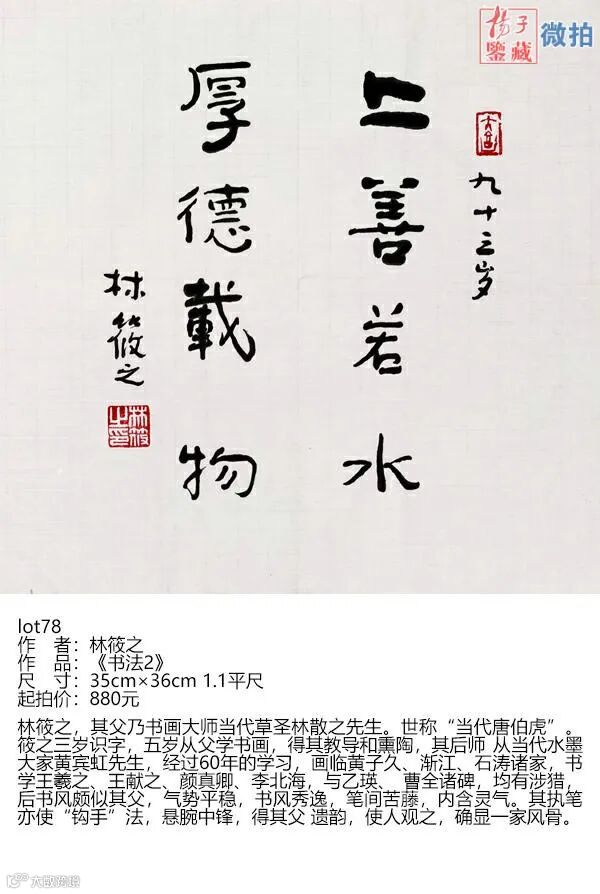 扬子
鉴藏
微拍
九十三岁
上善若水
厚德载物
林筱之
林筱
之印
lot78
作 者：林筱之
作 品：《书法2》
尺 寸：35cm×36cm 1.1平尺
起拍价：880元
林筱之，其父乃书画大师当代草圣林散之先生。世称“当代唐伯虎”。
筱之三岁识字，五岁从父学书画，得其教导和熏陶，其后师 从当代水墨
大家黄宾虹先生，经过60年的学习，画临黄子久、渐江、石涛诸家，书
学王羲之、王献之、颜真卿、李北海，与乙瑛、 曹全诸碑，均有涉猎，
后书风颇似其父，气势平稳，书风秀逸，笔间苦藤，内含灵气。其执笔
亦使“钩手”法，悬腕中锋，得其父 遗韵，使人观之，确显一家风骨。
大数跨境